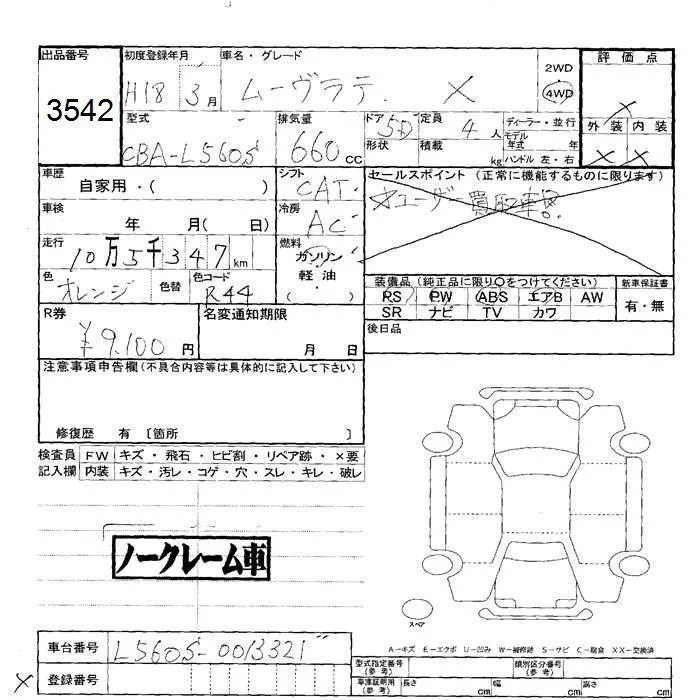 出品番号
3542
初度登録年月
H18 3月
車名・グレード
ムーヴラテ X
2WD
4WD
評価点
外装 内装
型式
CBA-L560S
排気量
660 cc
ドア 5D
形状
定員 4 人
積載 kg
ディーラー・並行
モデル年式 年
ハンドル 左・右
車歴
自家用・( )
シフト
CAT
セールスポイント (正常に機能するものに限ります)
ユーザー買取車
車検
年 月( 日)
冷房
AC
走行
10万5千347km
燃料
ガソリン
軽油
( )
色
オレンジ
色替
色コード
R44
装備品 (純正品に限り○をつけてください)
PS PW ABS エアB AW
SR ナビ TV カワ
新車保証書
有・無
R券
¥9,100円
名変通知期限
月 日
後日品
注意事項申告欄 (不具合内容等は具体的に記入して下さい)
修復歴 有 〔箇所 〕
検査員
記入欄
FW キズ・飛石・ヒビ割・リペア跡・×要
内装 キズ・汚レ・コゲ・穴・スレ・キレ・破レ
ノークレーム車
スペア
A-キズ E-エクボ U-凹み W-補修跡 S-サビ C-腐食 XX-交換済
車台番号
L560S-0013321
登録番号
型式指定番号
(参考)
類別区分番号
(参考)
車庫証明用
(参考)
長さ cm 幅 cm 高さ cm